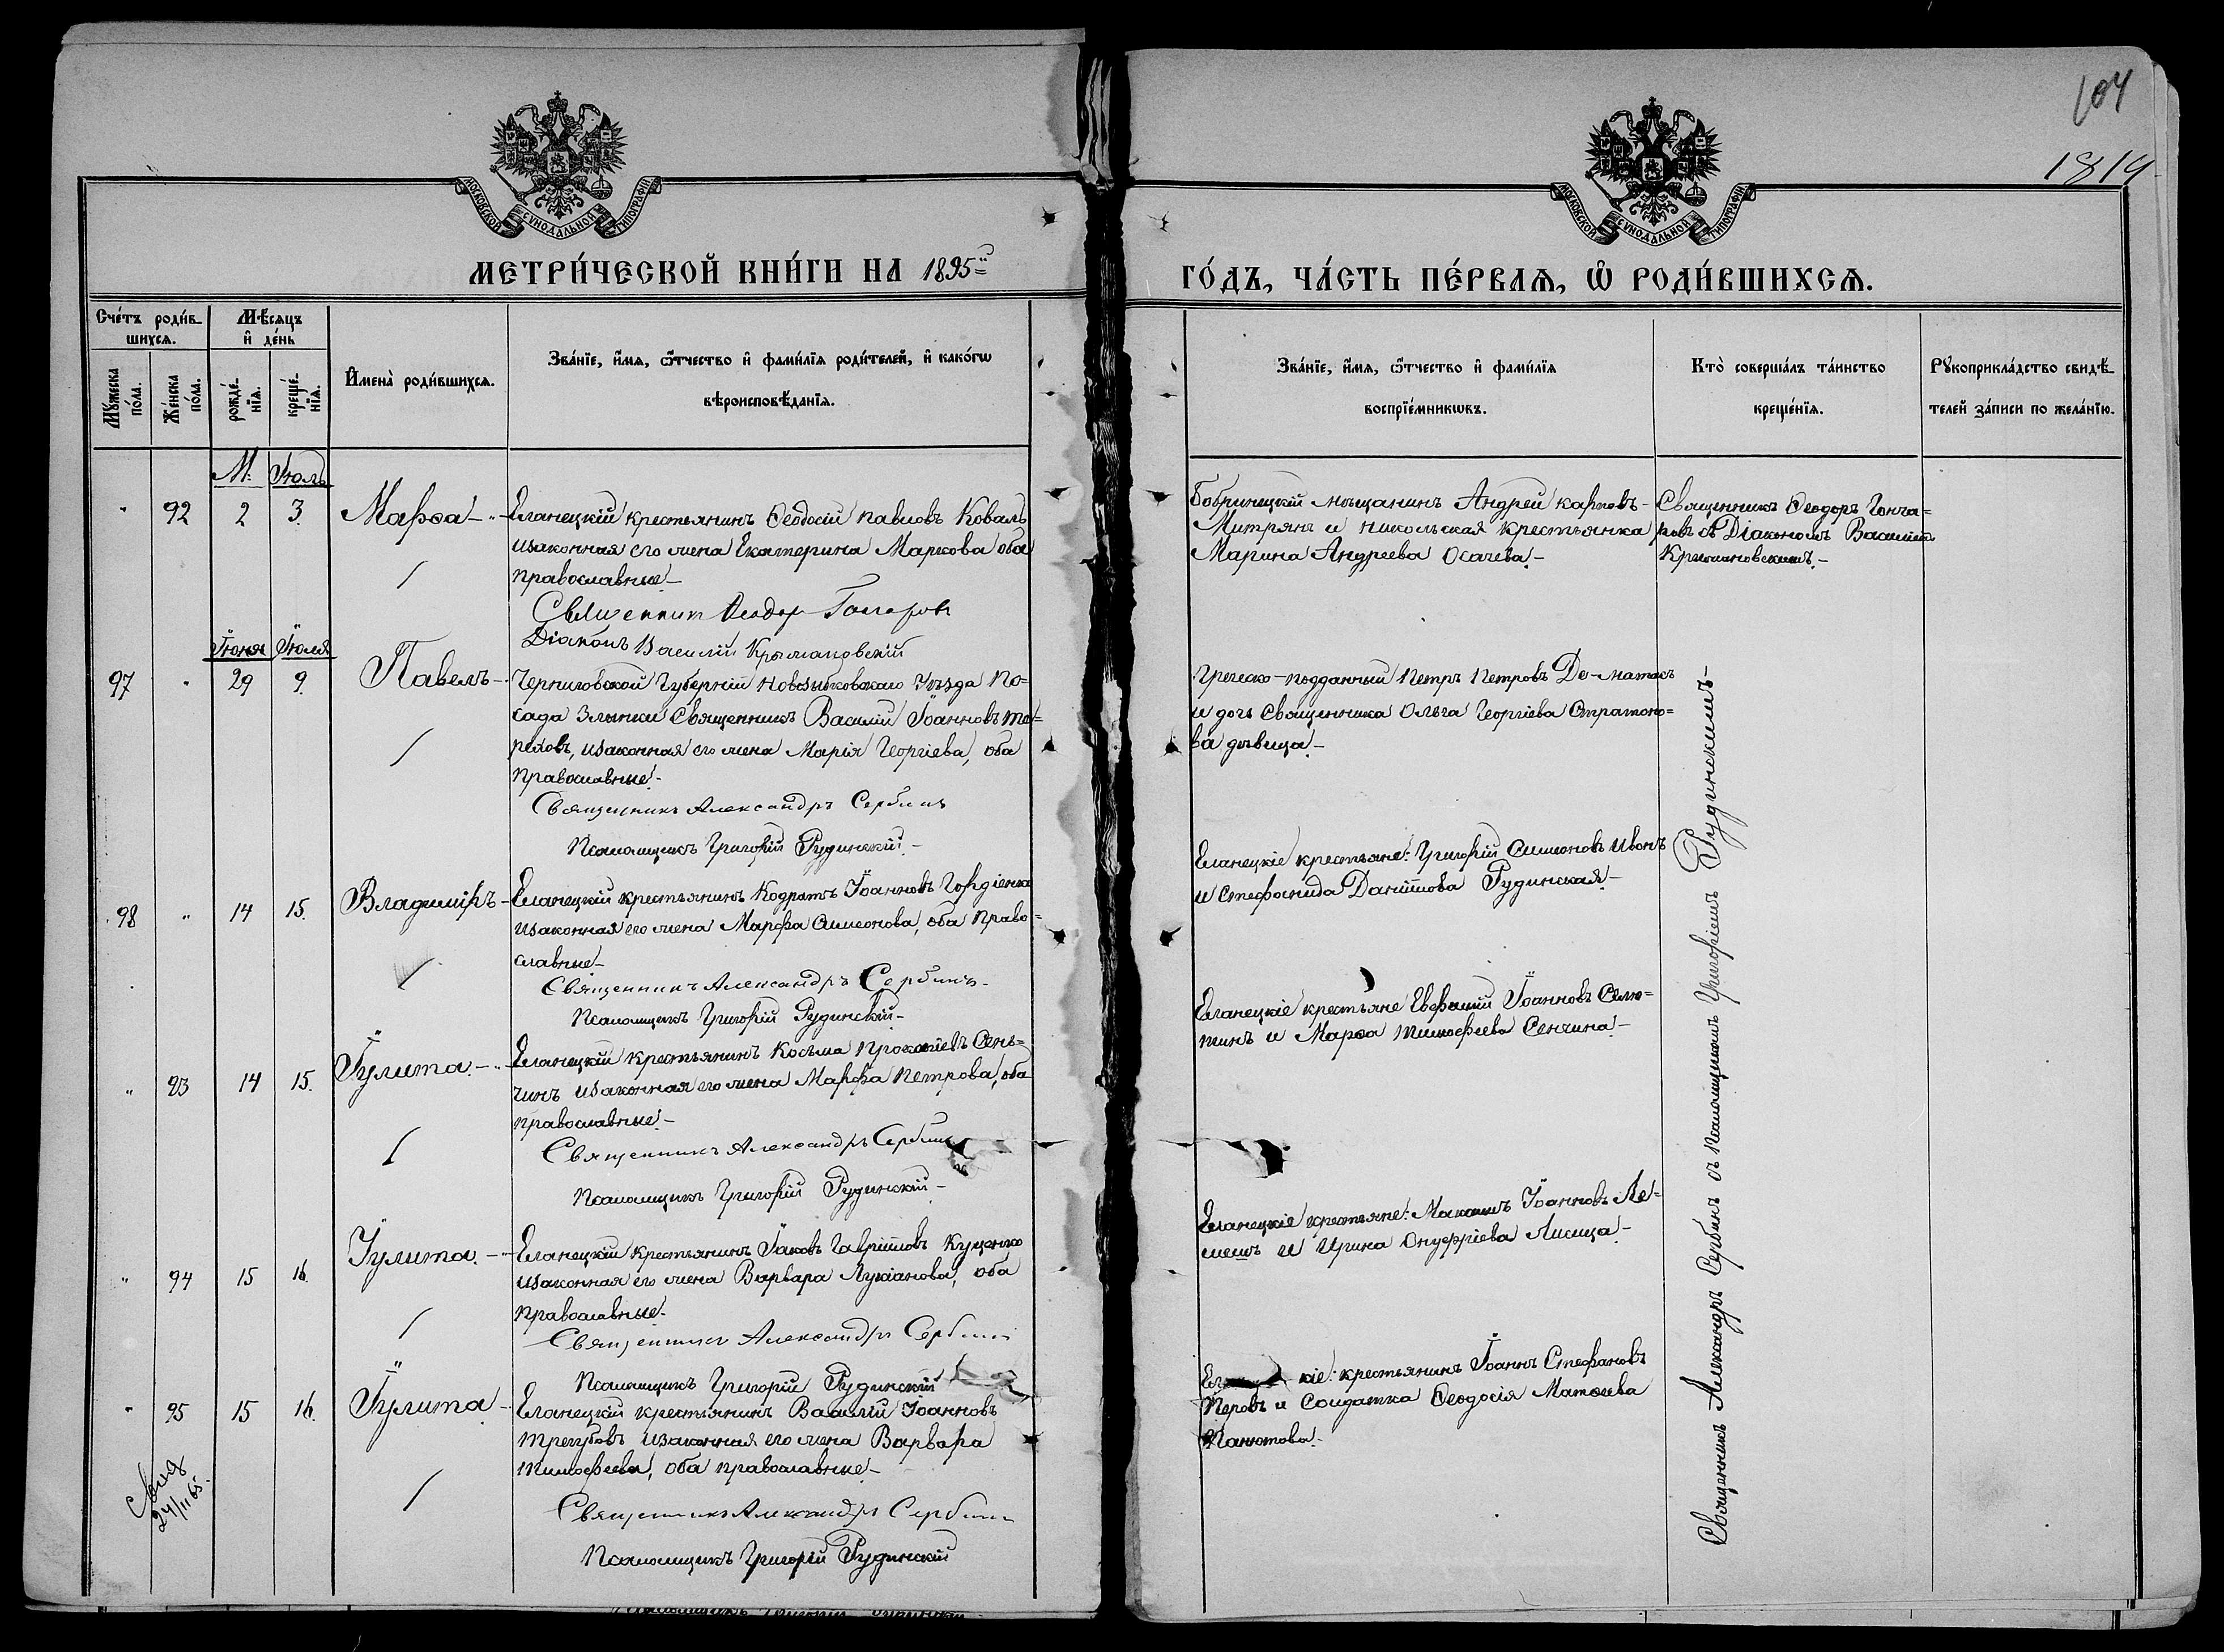 104
1814
МОСКОВСКОЙ СУНОДАЛЬНОЙ ТИПОГРАФІИ
МОСКОВСКОЙ СУНОДАЛЬНОЙ ТИПОГРАФІИ
МЕТРИ́ЧЕСКОЙ КНИ́ГИ НА 1895й
ГО́ДЪ, ЧА́СТЬ ПЕ́РВАѦ, Ѡ РОДИ́ВШИХСѦ.
Сче́тъ роди́вшихсѧ.
Мѣ́сѧцъ и҆ де́нь
Мꙋ́жеска по́ла.
Же́нска по́ла.
рожде́нїѧ.
креще́нїѧ.
И҆мена̀ роди́вшихсѧ.
Зва́нїе, и҆́мѧ, ѻ҆́тчество и҆ фамѝлїѧ роди́телей, и҆ како́гѡ
вѣроисповѣ́данїѧ.
Зва́нїе, и҆́мѧ, ѻ҆́тчество и҆ фамѝлїѧ
воспрїе́мникѡвъ.
Кто̀ соверша́лъ та́инство
креще́нїѧ.
Рꙋкоприкла́дство свидѣ́телей за́писи по жела́нїю.
М. Іюль
" 92 2 3. Марѳа
Еланецкій крестьянинъ Ѳеодосій Павловъ Коваль
и законная его жена Екатерина Маркова оба
православные.
Священник Ѳеодор Гончаров
Діаконъ Василій Крыжановскій
Бобринецкій мѣщанинъ Андрей Карповъ
Митрянъ и Никольская крестьянка
Марина Андреева Осачева.
Священникъ Ѳеодоръ Гонча=
ровъ съ Діакономъ Василіемъ
Крыжановскимъ.
Іюня Іюля
97 " 29 9. Павелъ
Черниговской Губерніи Новозыбковскаго Уѣзда По=
сада Злынки Священникъ Василій Іоанновъ Те=
реховъ, и законная его жена Марія Георгіева, оба
православные.
Священникъ Александръ Сербинъ
Псаломщикъ Григорій Рудинскій.
Греческо-подданный Петръ Петровъ Де-Матасъ
и дочь Священника Ольга Георгіева Стратоно=
ва дѣвица.
98 " 14 15. Владиміръ
Еланецкій крестьянинъ Кодратъ Іоанновъ Гордіенко
и законная его жена Марфа Симеонова, оба право=
славные.
Священникъ Александръ Сербинъ.
Псаломщикъ Григорій Рудинскій.
Еланецкіе крестьяне: Григорій Симеоновъ Ивонъ
и Стефанида Даніилова Рудинская.
" 93 14 15. Іулита.
Еланецкій крестьянинъ Косьма Прокопіевъ Сень=
чинъ и законная его жена Марфа Петрова, оба
православные.
Священникъ Александръ Сербинъ
Псаломщикъ Григорій Рудинскій
Еланецкіе крестьяне Евфимій Іоанновъ Селю=
тинъ и Марѳа Тимофеева Сенчина.
" 94 15 16. Іулита.
Еланецкій крестьянинъ Іаковъ Гавріиловъ Куценко
и законная его жена Варвара Лукіанова, оба
православные.
Священникъ Александръ Сербинъ
Псаломщикъ Григорій Рудинскій
Еланецкіе крестьяне: Максимъ Іоанновъ Ле=
мешъ и Ирина Онуфріева Лисица.
" 95 15 16. Іулита
Еланецкій крестьянинъ Василій Іоанновъ
Трегубовъ и законная его жена Варвара
Тимофеева, оба православные.
Священникъ Александръ Сербинъ
Псаломщикъ Григорій Рудинскій
кіе: крестьянинъ Іоаннъ Стефановъ
Перовъ и Солдатка Ѳеодосія Матѳеева
Панютова.
Священникъ Александръ Сербинъ съ Псаломщикомъ Григоріемъ Рудинскимъ
24/II 65.